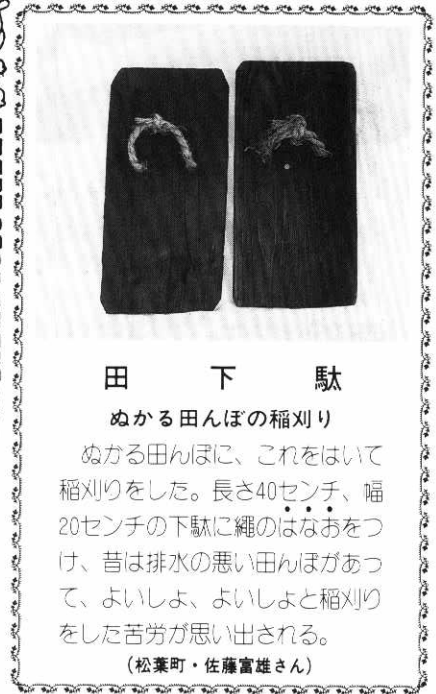 田下駄
ぬかる田んぼの稲刈り
ぬかる田んぼに、これをはいて
稲刈りをした。長さ40センチ、幅
20センチの下駄に繩のはなおをつ
け、昔は排水の悪い田んぼがあっ
て、よいしょ、よいしょと稲刈り
をした苦労が思い出される。
(松葉町・佐藤富雄さん)